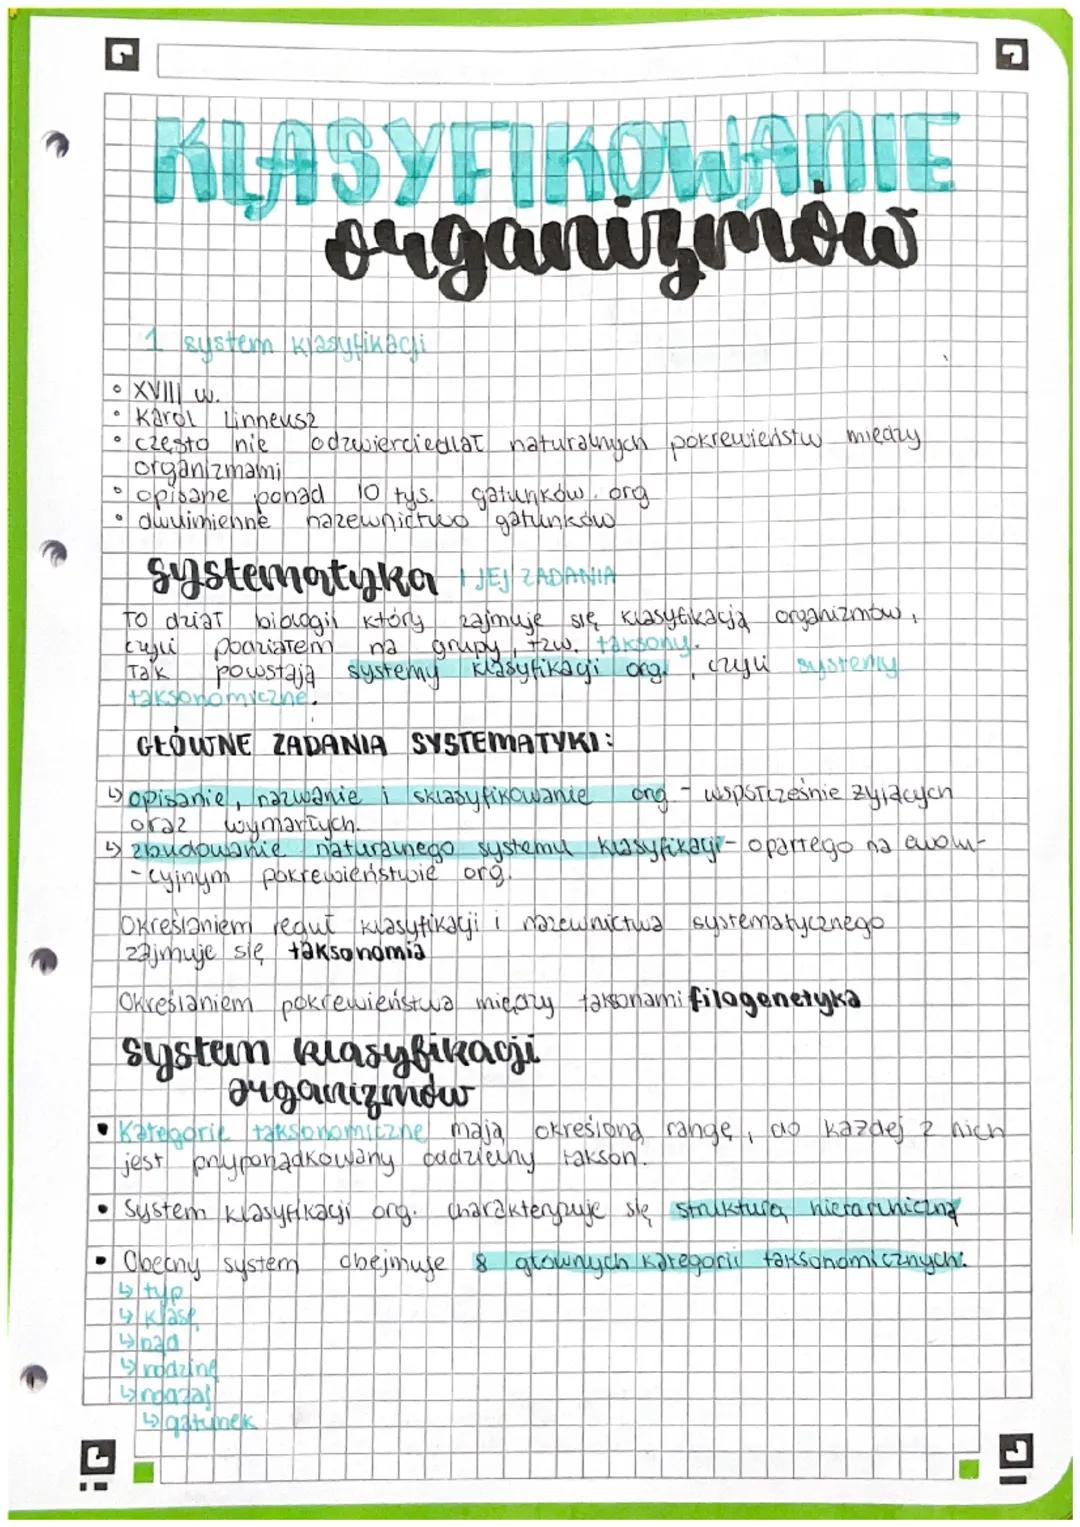 KLASYFIKOWANIE
organizmów
1 system klasyfikacji
• XVIII w.
• Karol Linneusz
• często nie odzwierciedlał naturalnych pokrewieństw między
organizmami
• opisane ponad 10 tys. gatunków org
• dwuimienne nazewnictwo gatunków
systematyka I JEJ ZADANIA
TO dział biologii który zajmuje się klasyfikacją organizmów,
czyli podziałem na grupy, tzw. taksony.
Tak powstają systemy klasyfikacji org., czyli systemy
taksonomiczne.
GŁÓWNE ZADANIA SYSTEMATYKI:
↳ opisanie, nazwanie i sklasyfikowanie org - współcześnie żyjących
oraz wymarłych.
↳ zbudowanie naturalnego systemu klasyfikacji - opartego na ewolu-
-cyjnym pokrewieństwie org.
Określaniem reguł klasyfikacji i nazewnictwa systematycznego
zajmuje się taksonomia
Określaniem pokrewieństwa między taksonami filogenetyka
system klasyfikacji
organizmów
• Kategorie taksonomiczne mają określoną rangę, do każdej z nich
jest przyporządkowany oddzielny takson.
• System klasyfikacji org. charakteryzuje się strukturą hierarchiczną
• Obecny system obejmuje 8 głównych kategorii taksonomicznych:
↳ typ
↳ klasę
↳ rząd
↳ rodzinę
↳ rodzaj
↳ gatunek